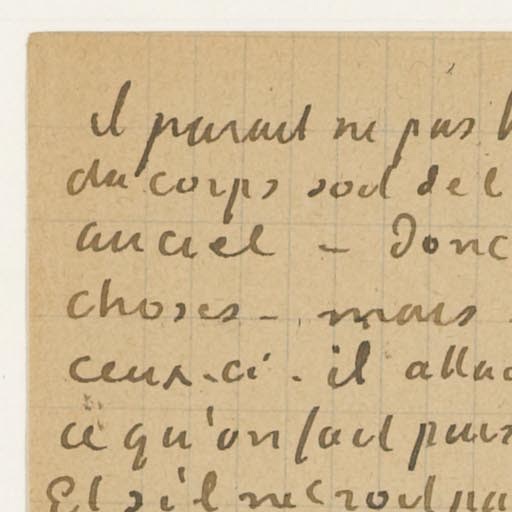 il parait ne pas
du corps soit de l
au ciel - Donc
choses - mais
ceux-ci - il attac
ce qu'on fait puis
Et s'il ne croit pa